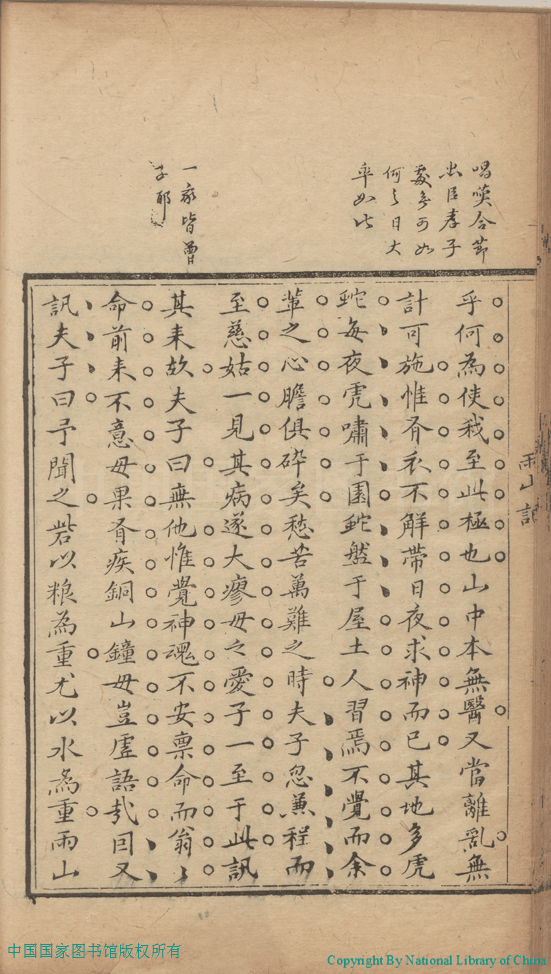 合節
臣孝子
可如
何之日大
率如此
一家皆曾
子耶
雨山記
乎何為使我至此極也山中本無醫又當離亂無
計可施惟有衣不解帶日夜求神而已其地多虎
蛇每夜虎嘯于園蛇盤于屋土人習焉不覺而余
輩之心膽俱碎矣愁苦萬難之時夫子忽兼程而
至慈姑一見其病遂大瘳母之愛子一至于此訊
其来故夫子曰無他惟覺神魂不安稟命而翁〻
命前来不意母果有疾銅山鐘毋豈虛語哉囙又
訊夫子曰予聞之砦以粮為重尤以水為重雨山
中国国家图书馆版权所有
Copyright By National Library of China